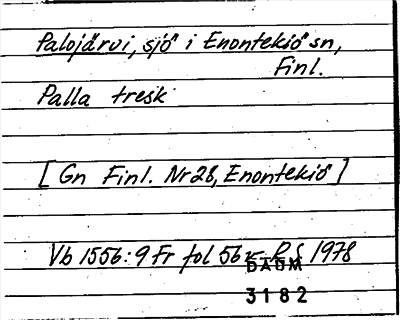 Palojärvi, sjö i Enontekiö sn,
Finl.
Palla tresk
[Gn Finl. Nr 28, Enontekiö]
Vb 1556:9 Fr fol 56 v R S 1978
DAUM
3182